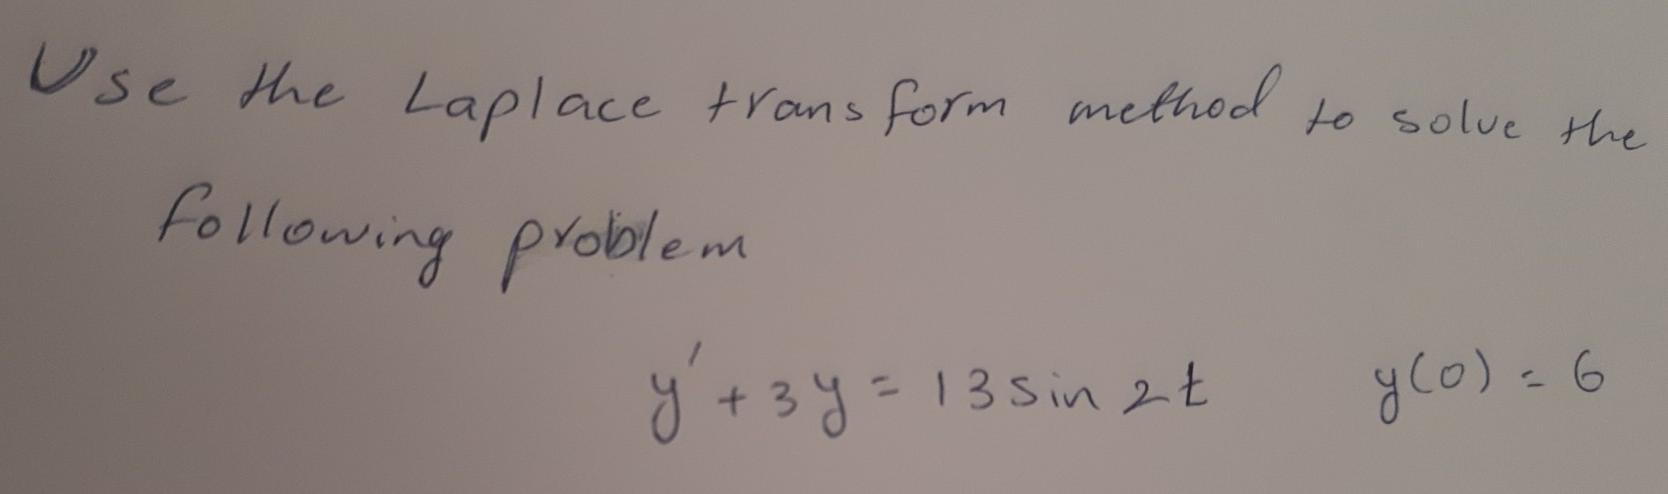 Use the Laplace transform method to solve the
following problem
y' + 3y = 13 sin 2t y(0) = 6